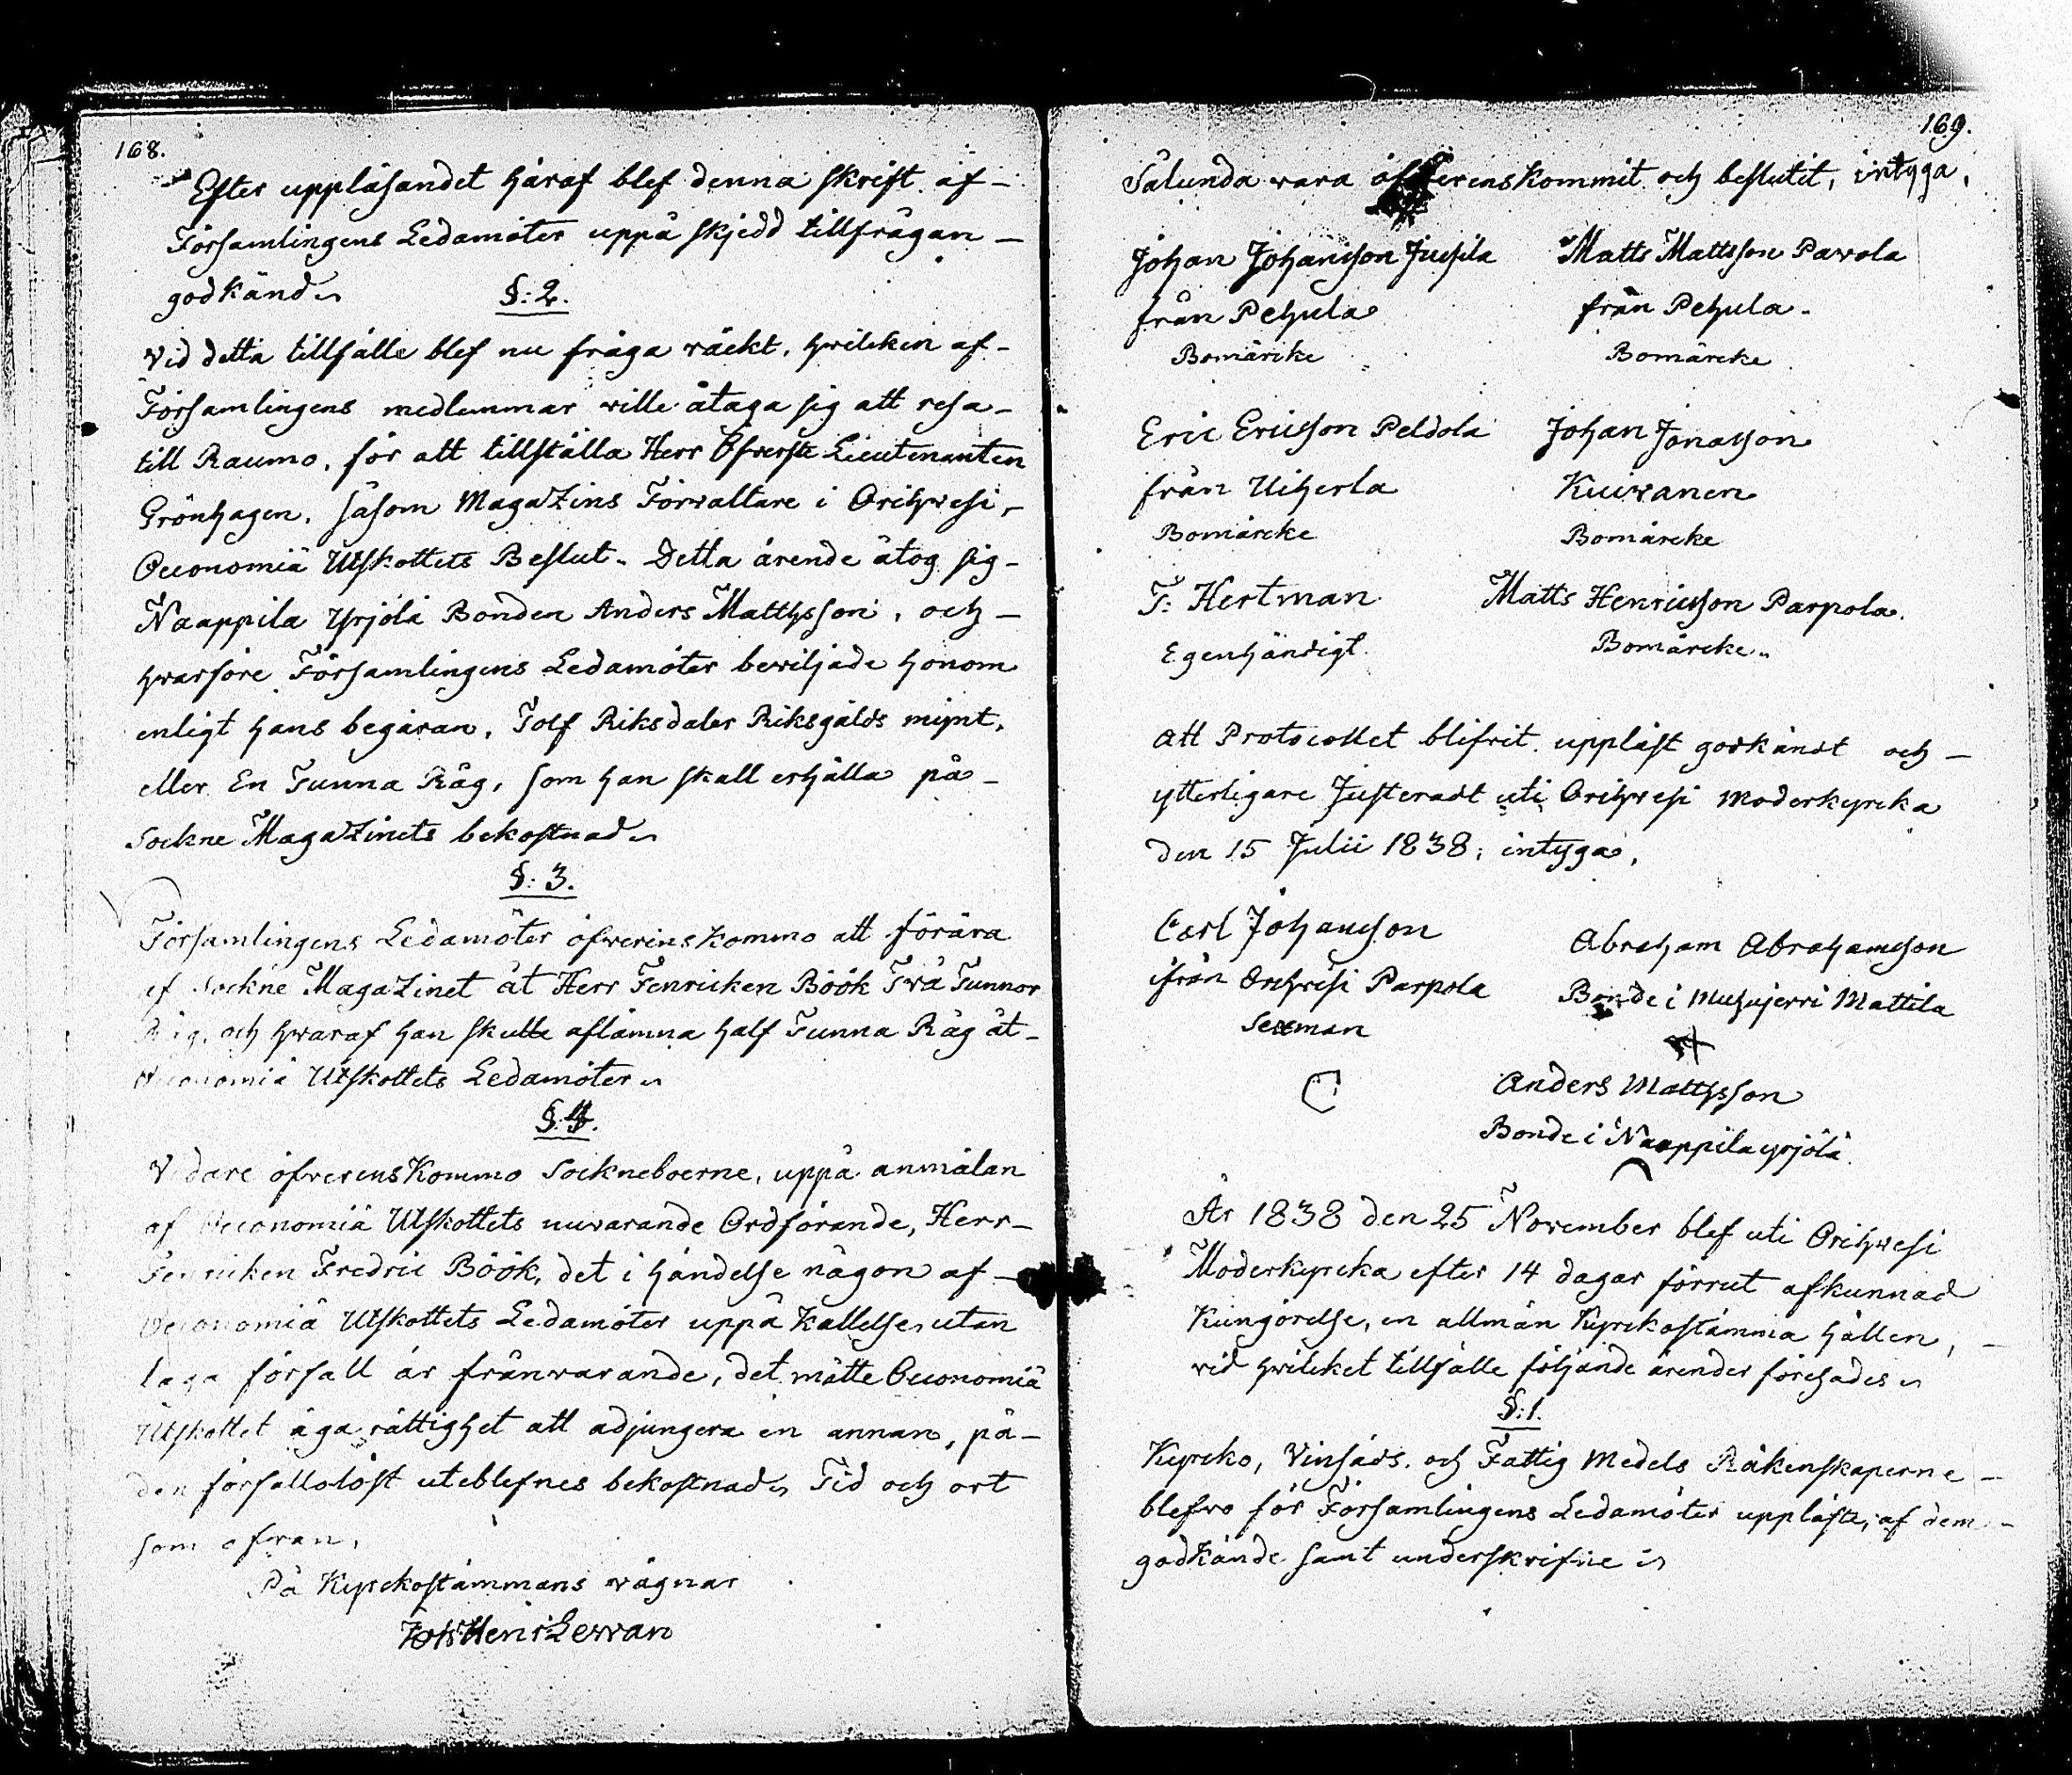 168.
Efter uppläsandet häraf blef denna skrift af-
Församlingens Ledamöter uppå skjedd tillfrågan -
godkänd.
§: 2.
Vid detta tillfälle blef nu fråga väckt, hvilcken af-
Församlingens medlemmar ville åtaga sig att resa-
till Raumo, för att tillställa Herr Öfverste Lieutenanten
Grönhagen, såsom Magazins Förvaltare i Orihvesi,
Oeconomiä Utskottets Beslut. Detta ärende åtog sig-
Naappila Yrjölä Bonden Anders Matthsson, och -
hvarföre Församlingens Ledamöter beviljade honom
enligt hans begäran, Tolf Riksdaler Riksgälds mynt,
eller En Tunna Råg, som han skall erhålla på -
Sockne Magazinets bekostnad.
§: 3.
Församlingens Ledamöter öfverenskommo att förära
af Sockne Magazinet åt Herr Fenricken Böök Två Tunnor
Råg, och hvaraf han skulle aflämna half Tunna Råg åt-
Oeconomiä Utskottets Ledamöter.
§: 4.
Vidare öfverenskommo Sockneboerne, uppå anmälan
af Oeconomiä Utskottets nuvarande Ordförande, Herr-
Fenricken Fredric Böök, det i händelse någon af -
Oeconomiä Utskottets Ledamöter uppå kallelse, utan
laga förfall är frånvarande, det måtte Oeconomiä
Utskottet äga rättighet att adjungera en annan, på-
den förfallolöst uteblefnes bekostnad. Tid och ort
som ofvan,
På Kyrckostämmans vägnar
Joh: Henr: Levvan
169.
Sålunda vara öfverenskommit och beslutit, intyga,
Johan Johansson Jussila
från Pehula
Bomärcke
Matts Mattsson Pavola
från Pehula.
Bomärcke
Eric Ericsson Peldola
från Uiherla
Bomärcke
Johan Jonasson
Kuivanen
Bomärcke
F: Hertman
Egenhändigt.
Matts Henricsson Parpola.
Bomärcke.
Att Protocollet blifvit uppläst godkändt och -
ytterligare Justeradt uti Orihvesi Moderkyrcka
den 15 Julii 1838; intyga,
Carl Johansson
ifrån Orihvesi Parpola
Sexman
Abraham Abrahamsson
Bonde i Muhujerri Mattila
Anders Matthsson
Bonde i Naappila yrjölä.
År 1838 den 25 November blef uti Orihvesi
Moderkyrcka efter 14 dagar förrut afkunnad
Kungörelse, en allmän Kyrckostämma hållen, -
vid hvilcket tillfälle följande ärender förehades.
§: 1.
Kyrcko, Vinsäds. och Fattig Medels Räkenskaperne -
blefvo för Församlingens Ledamöter uppläste, af dem -
godkände samt underskrifne